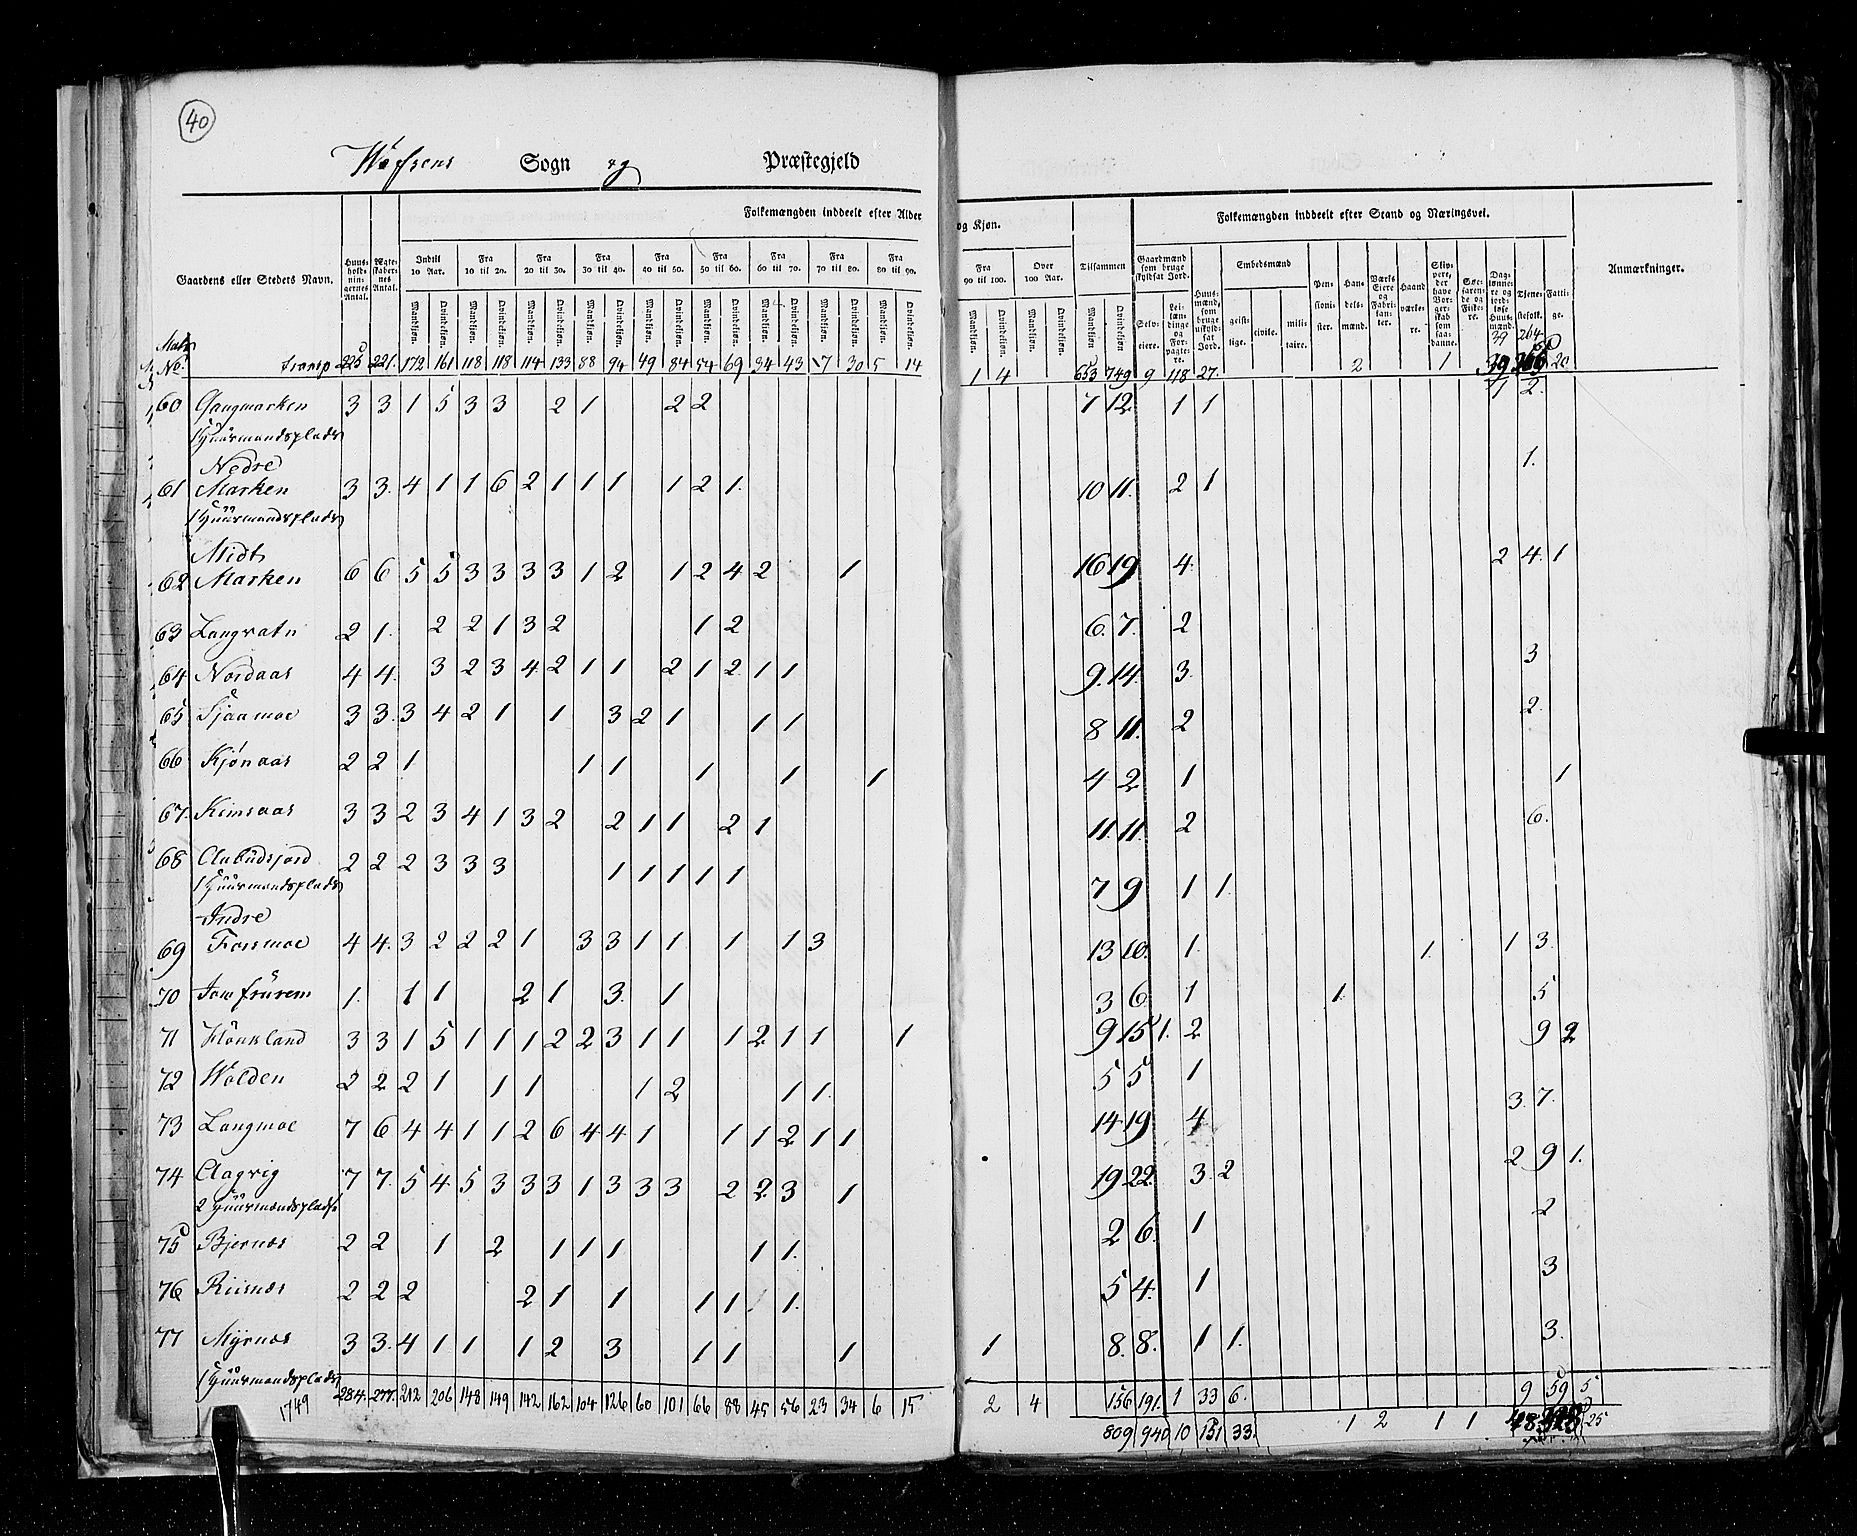 40
Wefsens Sogn og Præstegjeld
Folkemængden inddeelt efter Alder og Kjøn.
Folkemængden inddeelt efter Stand og Næringsvei.
Gaardens eller Steders Navn. Huusholdningernes Antal. Ægteskabernes Antal. Indtil 10 Aar. Fra 10 til 20. Fra 20 til 30. Fra 30 til 40. Fra 40 til 50. Fra 50 til 60. Fra 60 til 70. Fra 70 til 80. Fra 80 til 90. Fra 90 til 100. Over 100 Aar. Tilsammen
Gaardmænd som bruge skyldsat Jord. Huusmænd, som bruge uskyldsat Jord. Embedsmænd Pensionister. Handelsmænd. Værks Eiere og Fabrikanter. Haandværkere. Skippere, der have Borgerskab som saadanne. Søefarende og Fiskere. Dagлønnere og jordløse Huusmænd. Tjenestefolk. Fattige. Anmærkninger.
Mandkjøn. Qvindekjøn. Mandkjøn. Qvindekjøn. Mandkjøn. Qvindekjøn. Mandkjøn. Qvindekjøn. Mandkjøn. Qvindekjøn. Mandkjøn. Qvindekjøn. Mandkjøn. Qvindekjøn. Mandkjøn. Qvindekjøn. Mandkjøn. Qvindekjøn. Mandkjøn. Qvindekjøn. Mandkjøn. Qvindekjøn. Mandkjøn. Qvindekjøn. Selveiere. Leilændinge og Forpagtere. geistlige. civile. militaire.
39 264
Matr. No. Transp 225 221. 172 161 118 118 114 133 88 94 49 84 54 69 34 43 7 30 5 14 1 4 653 749 9 118 27. 2 1 39 20
60 Gangmarken 3 3 1 5 3 3 2 1 2 2 7 12. 1 1 1 2.
1 Huusmandsplads
Nedre
61 Marken 3 3. 4 1 1 6 2 1 1 1 1 2 1. 10 11. 2 1 1.
1 Huusmandsplads
Midt
62 Marken 6 6 5 5 3 3 3 3 1 2 1 2 4 2 1 16 19 4. 2 4. 1
63 Langvatn 2 1. 2 2 1 3 2 1 2 6. 7. 2
64 Nordaas 4 4. 3 2 3 4 2 1 1 2 1 2 1 1 9. 14. 3. 3
65 Sjaamoe 3 3. 3 4 2 1 1 3 2 1 1 1 8 11. 2 2.
66 Kjønaas 2 2 1 1 1 1 1 1 4 2 1 1
67. Kimsaas 3 3 2 3 4 1 3 2 2 1 1 2 1 11. 11. 2 6.
68 2 2 2 3 3 3 1 1 1 1 1 7 9 1 1.
1 Huusmandsplads
Indre
69 Forsmoe 4 4. 3 2 2 2 1 3 3 1 1 1 1 3 13 10. 1. 1. 1 3.
70 Jomfrürem 1. 1 1 2 1 3. 1 3 6. 1 1. 5
71 3 3 1 5 1 1 1 2 2 3 1 1 1 2. 1 1 1 9 15 1. 2 9 2
72 Wolden 2 2 2 1 1 1 1 2 1 1. 5 5 1
73 Langmoe 7 6 4 4 1 1 2 6 4 4 1 1 1 2 1 1 14 19. 4 3. 7.
74 Aagvig 7 7. 5 4 5 3 3 3 1 3 3 3 2 2 3 1 19 22. 3. 2 2 9 1.
2 Huusmandspladse
75 Bjernæs 2 2 1 2 1 1 1 1 1. 2 6. 1 2
76 Riisnæs 2 2 2 2 1 1 1 1 1. 5 4. 1 3
77 Myrnæs 3 3. 4 1 1 1 2 3 1 1 1 1 8. 8. 1 1. 3.
1 Huusmandsplads
284. 277. 212 206 148 149 142 162 104 126 60 101 66 88 45 56 23 34 6 15 2 4 156 191. 1 33 6. 9 59 5
1749 809 940 10 151 33. 1 2 1 1 48 25